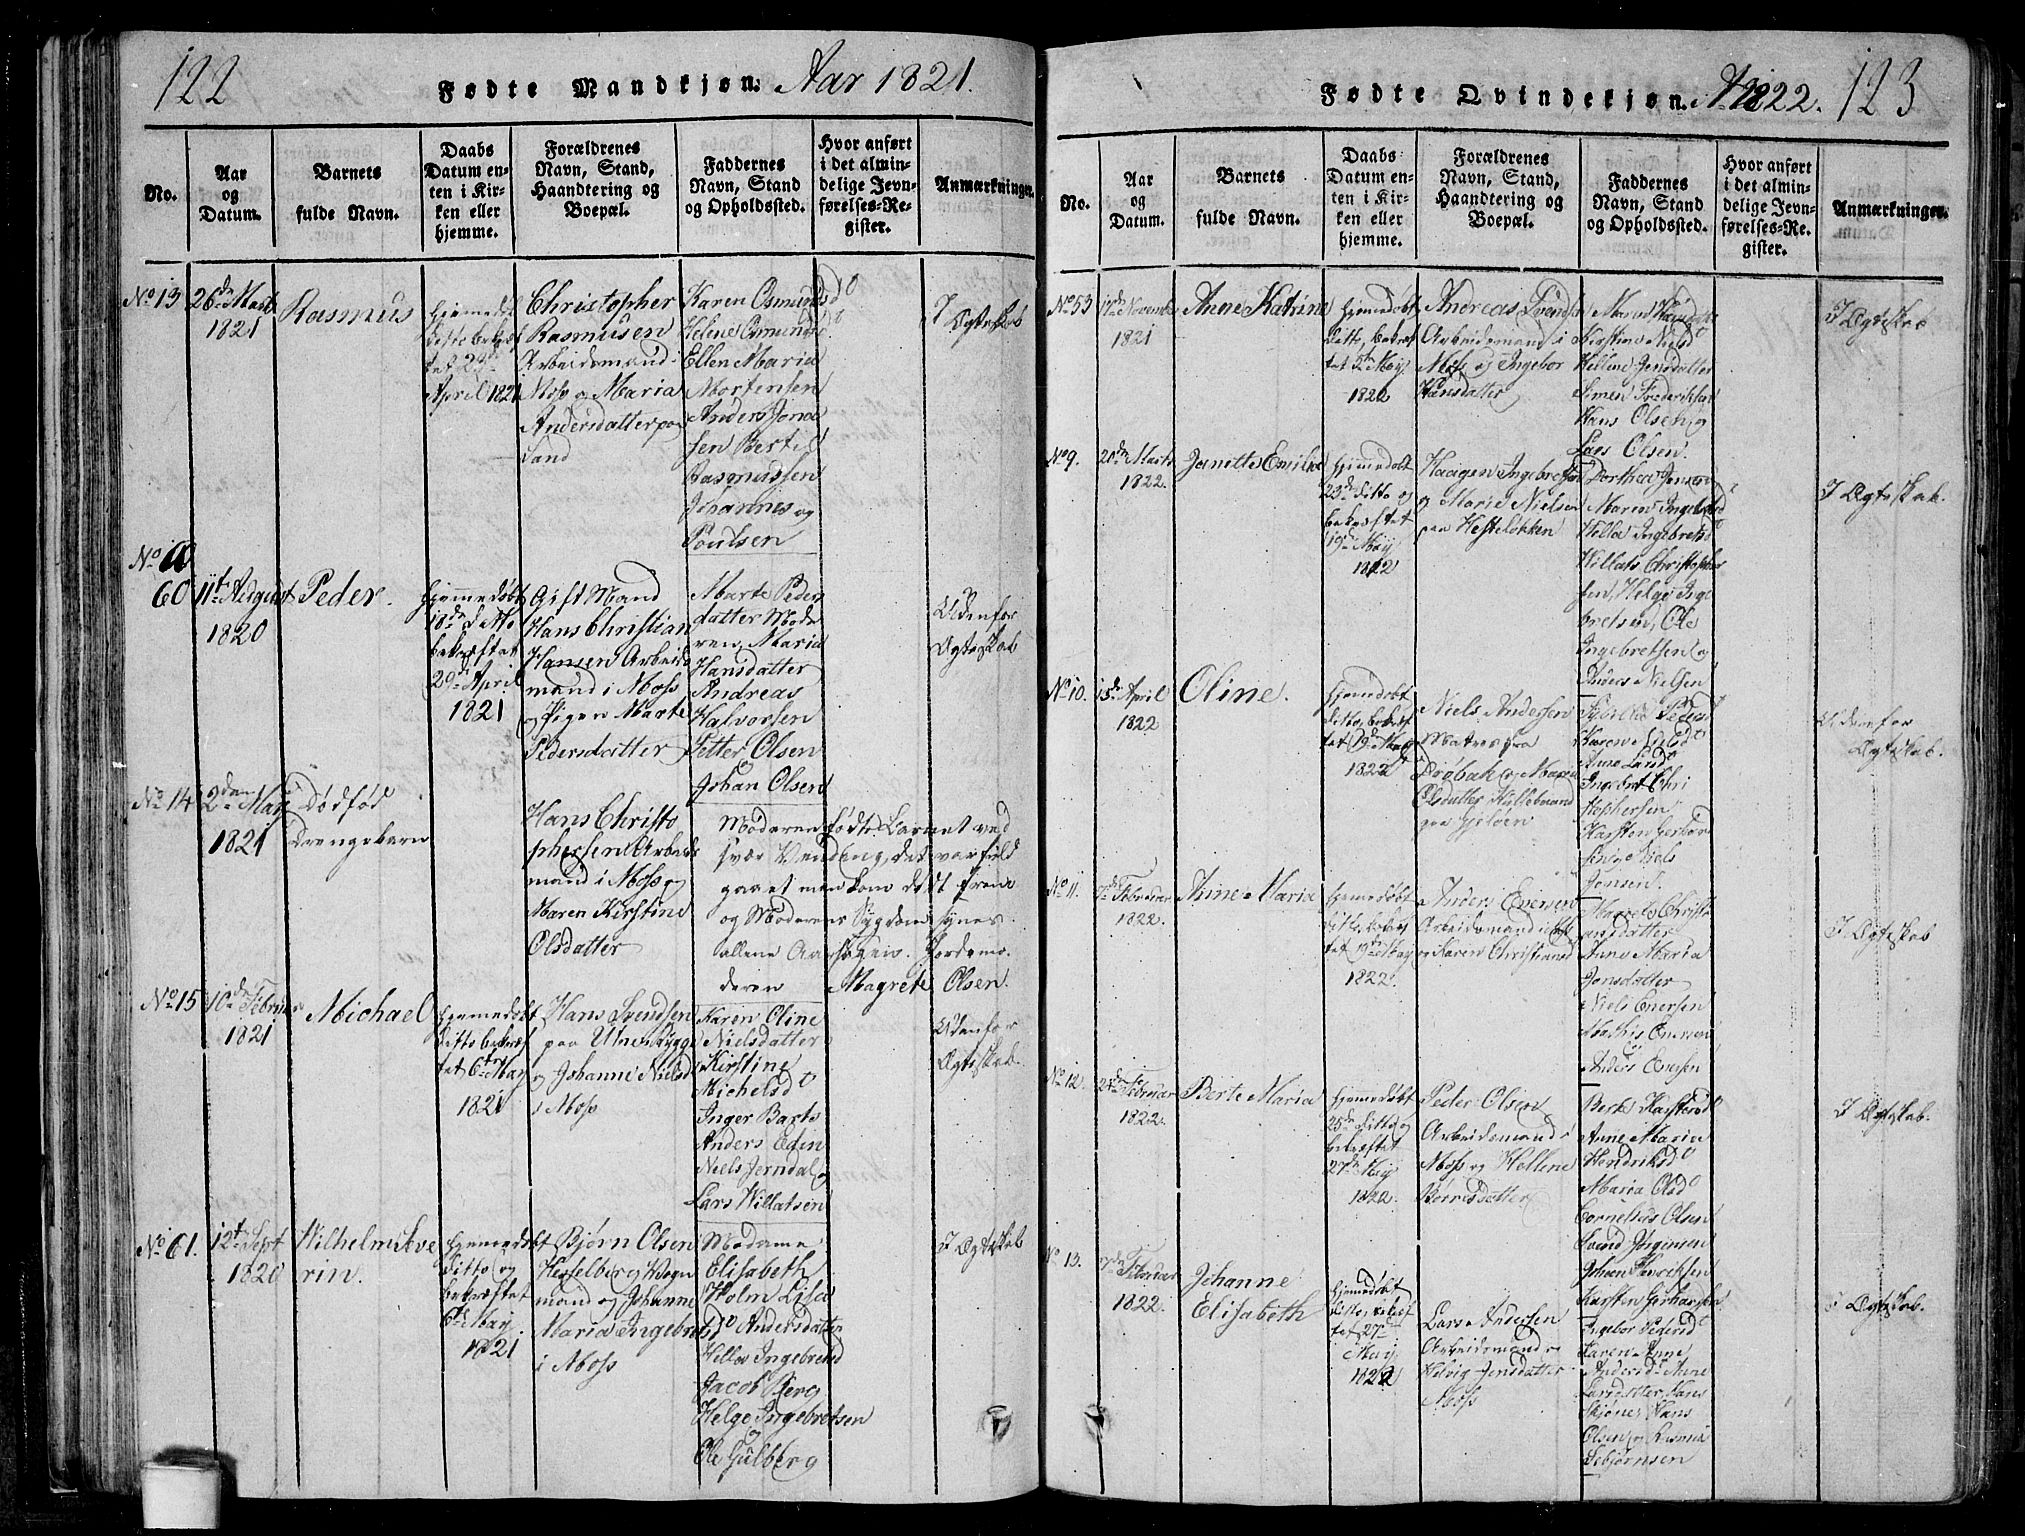 122
Fødte Mandkjøn. Aar 1821.
No.
Aar
og
Datum.
Barnets
fulde Navn.
Daabs
Datum en-
ten i Kir-
ken eller
hjemme.
Forældrenes
Navn, Stand,
Haandtering og
Boepæl.
Faddernes
Navn, Stand
og Opholdssted.
Hvor anført
i det almin-
delige Jevn-
førelses-Re-
gister.
Anmærkninger.
No 13
26de Marts
1821
Rasmus
Hjemmedøbt
ditto bekræf
tet 29de
April 1821
Christopher
Rasmusen
Arbeidsmand i
Moss og Maria
Andersdatter paa
Sand
Karen Osmundsdo
Helene Osmundsdo
Ellen Maria
Mortensen
Anders Jona
sen Bertil
Rasmussen
Johannes og
Poulsen
I Ægteskab
No
60
11te August
1820
Peder.
Hjemmedøbt
18de d. Mo
bekræftet
29de April
1821
Gift Mand
Hans Christian
Hansen Arbeids
mand i Moss
og Pigen Marte
Pedersdatter
Marte Peders
datter Mode
ren, Maria
Hansdatter
Andreas
Halvorsen
Petter Olsen
Johan Olsen
Udenfor
Ægteskab
No 14
2den May
1821
Dødfød
Drengebarn
Hans Christo
phersen Arbeids
mand i Moss og
Maren Kirstine
Olsdatter
Moderen fødte Barnet ved
svær Vending, det var fuld
gaaet men kom dødt frem
og Moderens Sygdom synes
allene Aarsagen. Jordemo.
deren Magrete Olsen.
No 15
10de Februar
1821
Michael
Hjemmedøbt
ditto bekræf
tet 6te May
1821
Hans Svendsen
paa Unerrygge
og Johanne Nielsd
i Moss
Karen Oline
Nielsdatter
Kirstine
Michelsdo
Inger Barts
Anders Edin
Niels Jerndal og
Lars Willatsen
Udenfor
Ægteskab.
No 61.
12te Sept
1820
Wilhelm Seve
rin.
Hjemmedøbt
ditto og
bekræftet
6de May
1821
Bjørn Olsen
Hesselberg Vogn
mand og Johanne
Maria Ingebretsd
i Moss
Madame
Elisabeth
Holm Lisa
do Andersdatter
Helle Ingebretsd
Jacob Berg
Helge Ingebretsen
og
Ole Gulberg
I Ægteskab
123
Fødte Qvindekjøn. Aar 1822.
No.
Aar
og
Datum.
Barnets
fulde Navn.
Daabs
Datum en-
ten i Kir-
ken eller
hjemme.
Forældrenes
Navn, Stand,
Haandtering og
Boepæl.
Faddernes
Navn, Stand
og Opholdssted.
Hvor anført
i det almin-
delige Jevn-
førelses-Re-
gister.
Anmærkninger.
No 53
17de November
1821
Anne Katrine
Hjemedøbt
ditto, bekræf
tet 5te May
1822
Andreas Svends
Arbeidsmand i
Moss og Ingebor
Hansdatter
Maren
Kirstine Nielsdo
Hellene Jensdatter
Simen Frederiksen
Hans Olsen og
Lars Olsen.
I Ægteskab
No 9.
20de Marts
1822.
Janette Emilie
Hjemedøbt
23de ditto og
bekræftet
19de May
1822
Haagen Ingebretsen
og Marie Nielsen
paa Hesteløkken
Dorthea Jensen
Maren Ingebretsdo
Hella Ingebretsd
Willats Christopher
sen, Helge Inge
bretsen, Ole
Ingebretsen og
Anders Nielsen
I Ægteskab.
No 10.
15de April
1822
Oline.
Hjemedøbt
ditto, bekræf
tet 19de May
1822
Niels Andersen
Matros fra
Drøbak og Maren
Olsdatter
paa Gjeløen
Pedersdo
Karen Nielsdo
Anne Lund
Ingebret Chri
stophersen
Karsten Gerhar
Niels
Jonsen.
Udenfor
Ægteskab.
No 11.
7de Februar
1822.
Anne Maria
Hjemedøbt
ditto, bekræf
tet 19de May
1822.
Anders Enersen
Arbeidsmand i Moss
og Karen Christiansd
Marte Christi
ansdatter
Anne Maria
Jonsdatter
Niels Enersen
Mathis Enersen
og
Anders Enersen
I Ægteskab
No 12.
24de Februar
1822.
Berte Maria
Hjemmedøbt
25de ditto og
bekræftet
27de May
1822.
Peder Olsen
Arbeidsmand i
Moss og Hellene
Børresdatter
Berte Karstensdo
Anne Maria
Hendriksdo
Maria Olsdo
Cornelius Olsen
Svend Jørgensen
Johan Henrichsen
Karsten Gerhartsen
I Ægteskab.
No 13.
7de Februar
1822.
Johanne
Elisabeth
Hjemmedøbt
ditto, bekræf
tet 27de
May
1822
Lars Andersen
Arbeidsmand og
Helvig Jensdatter
Moss
Ingebor Pedersd
Karen Anne
Andersd Anne
Larsdatter, Hans
Skjøne, Hans
Olsen og Rasmus
Esbjørnsen
I Ægteskab.